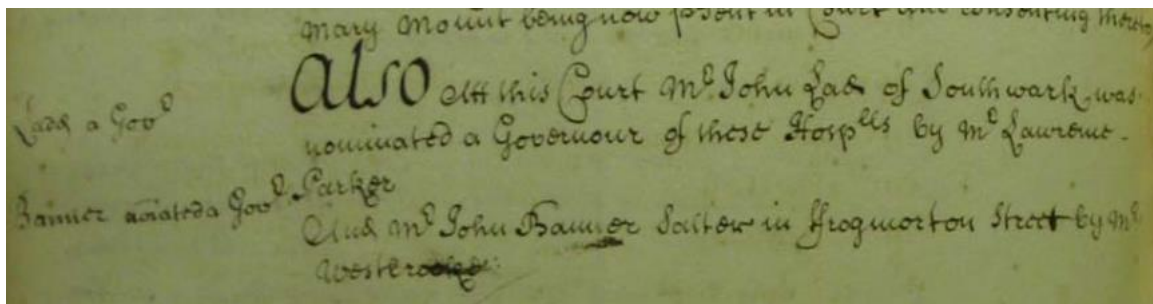 Mary Mount being now p̱sent in Court and consenting thereto,
Also Att this Court Mr John Lad of Southwark was
Ladd a Govr
nominated a Governour of these Hosplls by Mr Lawrence
Parker
Banner noiated a Govr
And Mr John Banner Salter in ffrogmorton Street by Mr
Westbrooke